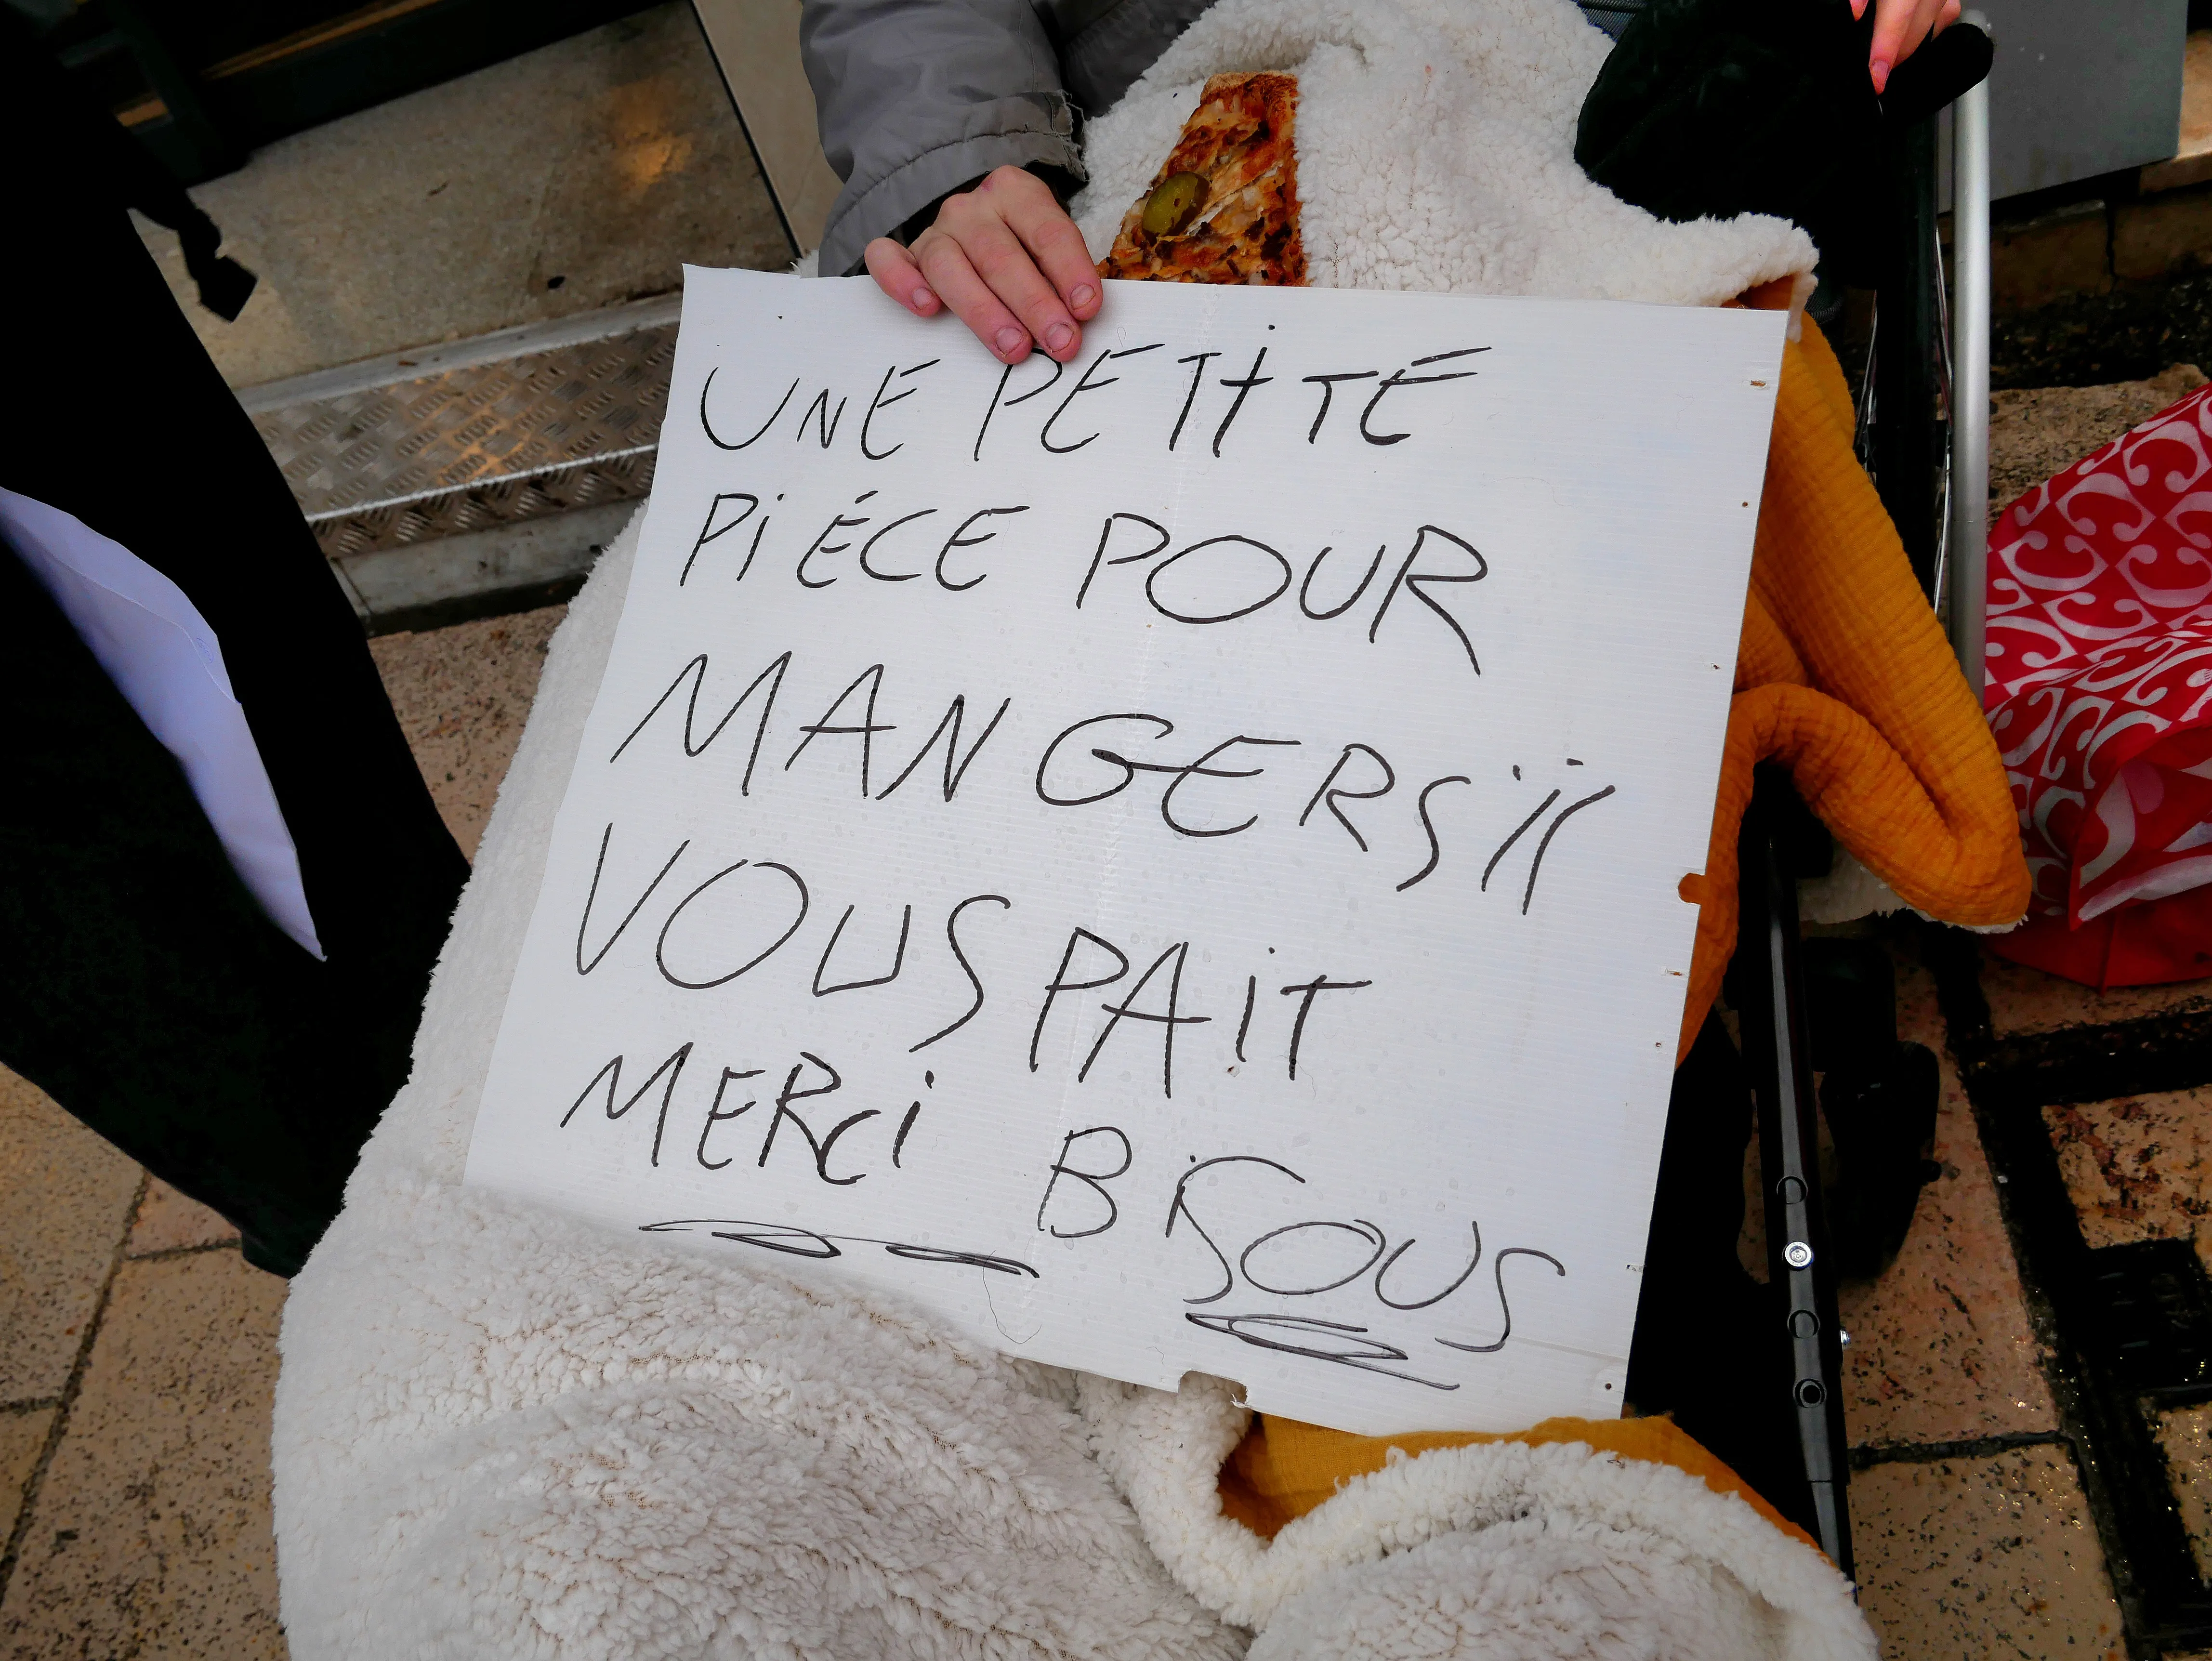 UNE PETITE
PiÉCE POUR
MANGER Sil
VOUS PAiT
MERCi BiSOUS